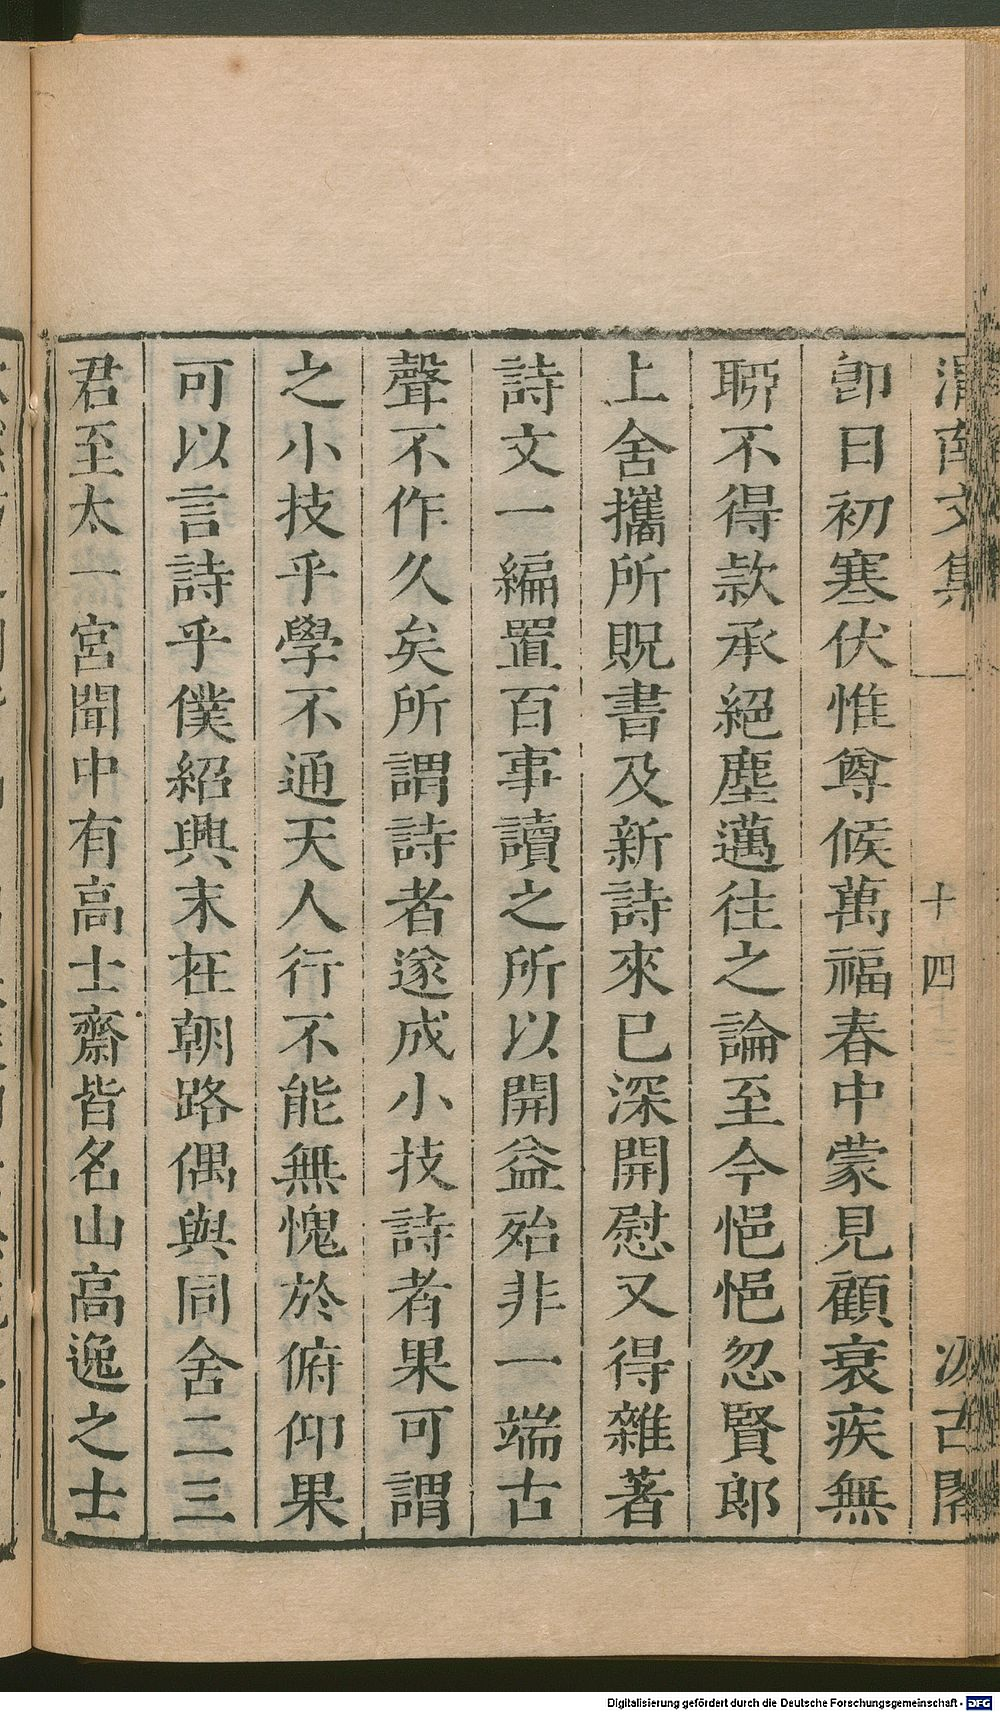 渭南文集
十四
汲古閣
卽日初寒伏惟尊候萬福春中蒙見顧衰疾無
聊不得款承絕塵邁往之論至今悒悒忽賢郎
上舍攜所貺書及新詩來已深開慰又得雜著
詩文一編置百事讀之所以開益殆非一端古
聲不作久矣所謂詩者遂成小技詩者果可謂
之小技乎學不通天人行不能無愧於俯仰果
可以言詩乎僕紹興末在朝路偶與同舍二三
君至太一宮聞中有高士齋皆名山高逸之士
Digitalisierung gefördert durch die Deutsche Forschungsgemeinschaft - DFG